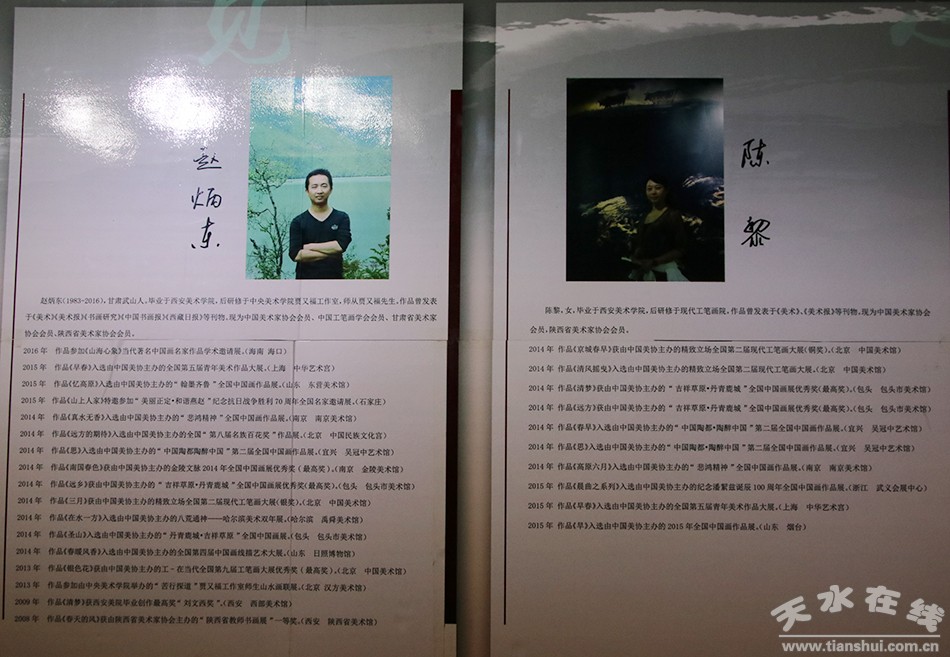 赵炳东
赵炳东(1983-2016)，甘肃武山人。毕业于西安美术学院，后研修于中央美术学院贾又福工作室，师从贾又福先生，作品曾发表
于《美术》《美术报》《书画研究》《中国书画报》《西藏日报》等刊物。现为中国美术家协会会员、中国工笔画学会会员、甘肃省美术家
协会会员、陕西省美术家协会会员。
2016 年 作品参加《山海心象》当代著名中国画名家作品学术邀请展。（海南 海口）
2015 年 作品《早春》入选由中国美协主办的全国第五届青年美术作品大展。（上海 中华艺术宫）
2015 年 作品《忆高原》入选由中国美协主办的“翰墨齐鲁”全国中国画作品展。（山东 东营美术馆）
2015 年 作品《山上人家》特邀参加“美丽正定·和谐燕赵”纪念抗日战争胜利 70 周年全国名家邀请展。（石家庄）
2014 年 作品《真水无香》入选由中国美协主办的“悲鸿精神”全国中国画作品展。（南京 南京美术馆）
2014 年 作品《远方的期待》入选由中国美协主办的全国“第八届名族百花奖”作品展。（北京 中国民族文化宫）
2014 年 作品《思》入选由中国美协主办的“中国陶都陶醉中国”第二届全国中国画作品展。（宜兴 吴冠中艺术馆）
2014 年 作品《南国春色》获由中国美协主办的金陵文脉 2014 年全国中国画展优秀奖（最高奖）。（南京 金陵美术馆）
2014 年 作品《远乡》获由中国美协主办的“吉祥草原·丹青鹿城”全国中国画展优秀奖（最高奖）。（包头 包头市美术馆）
2014 年 作品《三月》获由中国美协主办的精致立场全国第二届现代工笔画大展（银奖）。（北京 中国美术馆）
2014 年 作品《在水一方》入选由中国美协主办的八荒通神——哈尔滨美术双年展。（哈尔滨 禹舜美术馆）
2014 年 作品《圣山》入选由中国美协主办的“丹青鹿城·吉祥草原”全国中国画展。（包头 包头市美术馆）
2014 年 作品《春暖风香》入选由中国美协主办的全国第四届中国画线描艺术大展。（山东 日照博物馆）
2013 年 作品《银色花》获由中国美协主办的工－在当代全国第九届工笔画大展优秀奖（最高奖）。（北京 中国美术馆）
2013 年 作品参加由中央美术学院举办的“苦行探道”贾又福工作室师生山水画联展。（北京 汉方美术馆）
2009 年 作品《清梦》获西安美院毕业创作最高奖“刘文西奖”。（西安 西部美术馆）
2008 年 作品《春天的风》获由陕西省美术家协会主办的“陕西省教师书画展”一等奖。（西安 陕西省美术馆）
陈黎
陈黎，女，毕业于西安美术学院，后研修于现代工笔画院。作品曾发表于《美术》、《美术报》等刊物。现为中国美术家协会
会员、陕西省美术家协会会员。
2014 年 作品《京城春早》获由中国美协主办的精致立场全国第二届现代工笔画大展（铜奖）。（北京 中国美术馆）
2014 年 作品《清风摇曳》入选由中国美协主办的精致立场全国第二届现代工笔画大展。（北京 中国美术馆）
2014 年 作品《清梦》获由中国美协主办的“吉祥草原·丹青鹿城”全国中国画展优秀奖（最高奖）。（包头 包头市美术馆）
2014 年 作品《远方》获由中国美协主办的“吉祥草原·丹青鹿城”全国中国画展优秀奖（最高奖）。（包头 包头市美术馆）
2014 年 作品《春早》入选由中国美协主办的“中国陶都·陶醉中国”第二届全国中国画作品展。（宜兴 吴冠中艺术馆）
2014 年 作品《思》入选由中国美协主办的“中国陶都·陶醉中国”第二届全国中国画作品展。（宜兴 吴冠中艺术馆）
2014 年 作品《高原六月》入选由中国美协主办的“悲鸿精神”全国中国画作品展。（南京 南京美术馆）
2015 年 作品《晨曲之系列》入选由中国美协主办的纪念潘絜兹诞辰 100 周年全国中国画作品展。（浙江 武义会展中心）
2015 年 作品《早春》入选由中国美协主办的全国第五届青年美术作品大展。（上海 中华艺术宫）
2015 年 作品《早》入选由中国美协主办的 2015 年全国中国画作品展。（山东 烟台）
天水在线
www.tianshui.com.cn